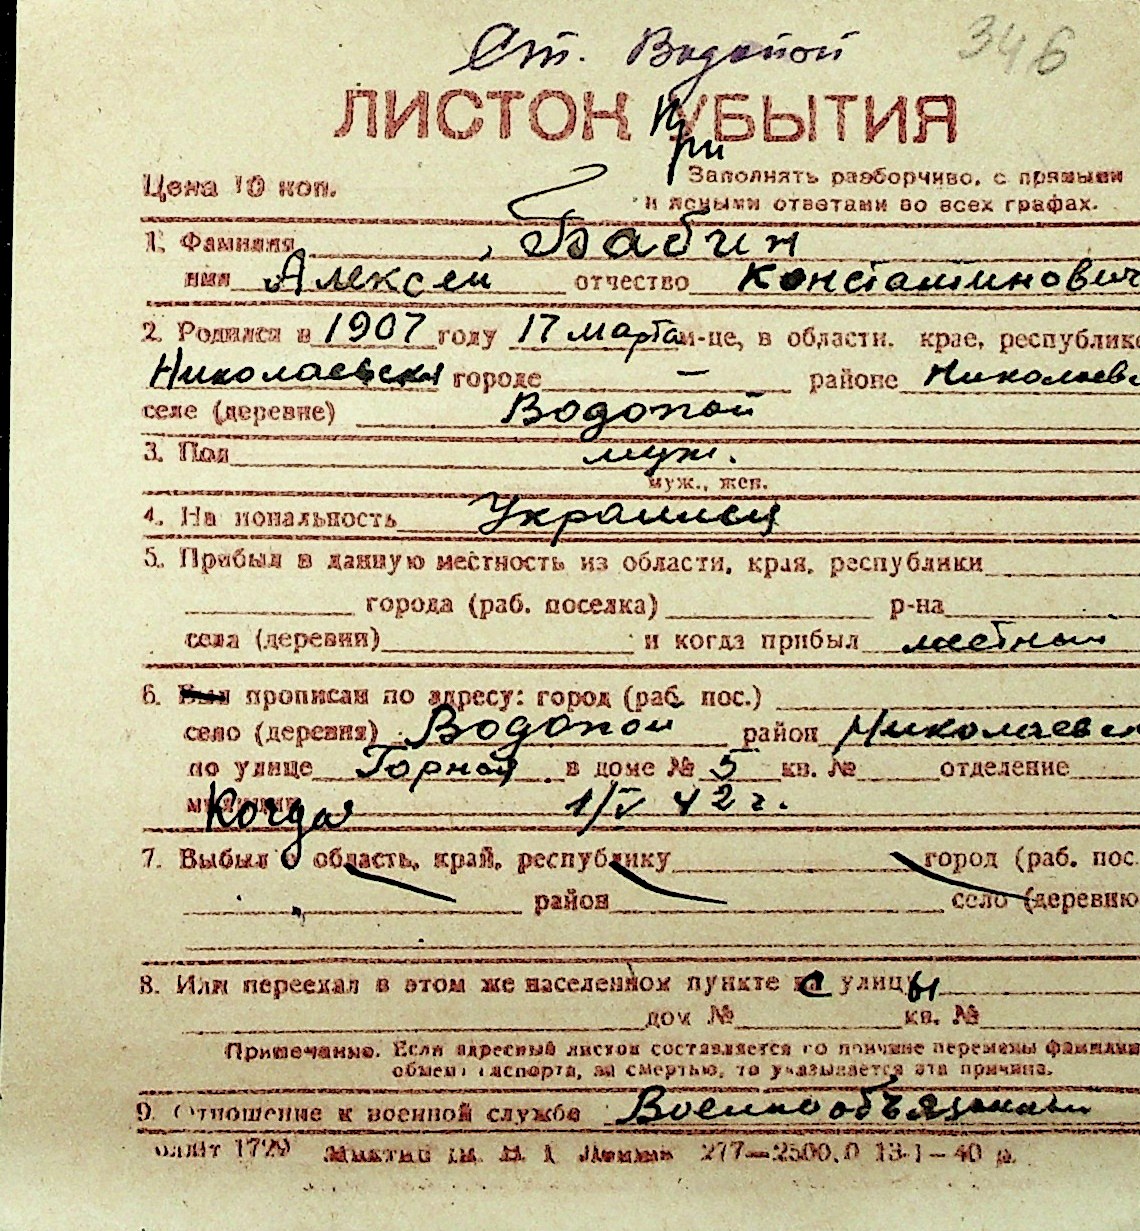 Ст. Водопой 346
ЛИСТОК УБЫТИЯ
При
Цена 10 коп.
Заполнять разборчиво, с прямыми
и ясными ответами во всех графах.
1. Фамилия Бабин
имя Алексей отчество Константинович
2. Родился в 1907 году 17 марта м-це, в области, крае, республике
Николаевская городе — районе Николаевс
селе (деревне) Водопой
3. Пол муж.
муж., жен.
4. Национальность Украинец
5. Прибыл в данную местность из области, края, республики
города (раб. поселка) р-на
села (деревни) и когда прибыл местный
6. Был прописан по адресу: город (раб. пос.)
село (деревня) Водопой район Николаевск
по улице Горной в доме № 5 кв. № отделение
милиции Когда 1/V 42 г.
7. Выбыл в область, край, республику город (раб. пос.
район село (деревню
8. Или переехал в этом же населенном пункте с улицы
дом № кв. №
Примечание. Если адресный листок составляется по причине перемены фамилии
обмена паспорта, за смертью, то указывается эта причина.
9. Отношение к военной службе Военнообязанный
1729 277—2500.0 13-1—40 р.